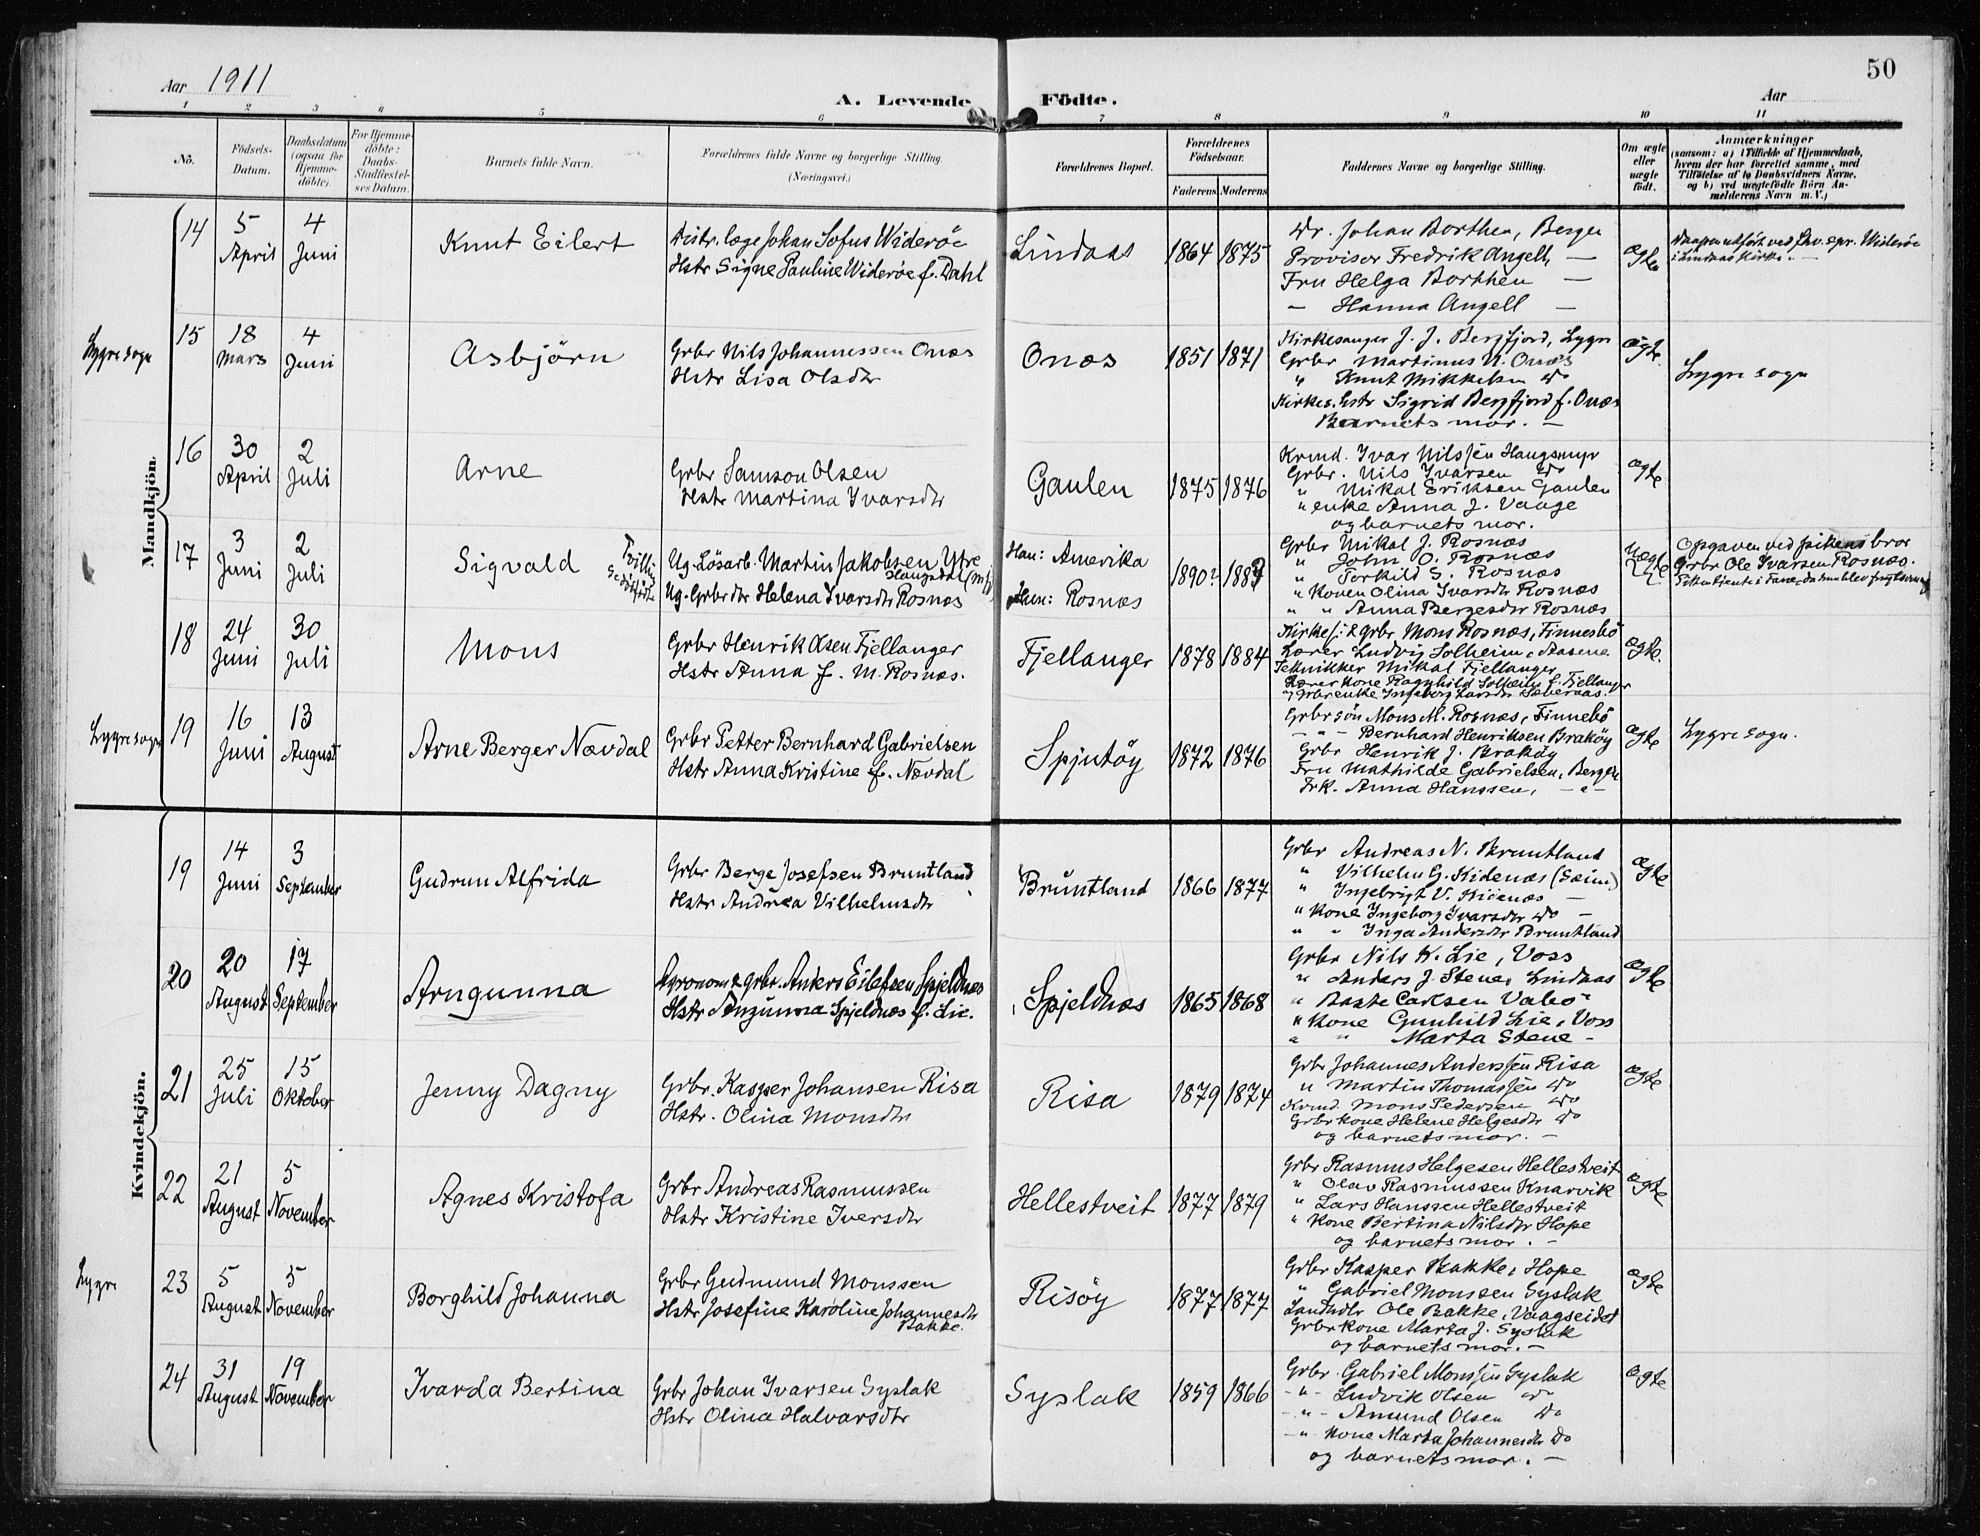 50
Aar 1911
A. Levende Födte.
Aar
1 2 3 4 5 6 7 8 9 10 11
No.
Födsels-
Datum.
Daabsdatum
(ogsaa for
Hjemme-
döbte).
For Hjemme-
döbte:
Daabs-
Stadfæstel-
ses Datum.
Barnets fulde Navn.
Forældrenes fulde Navne og borgerlige Stilling.
(Næringsvei.)
Forældrenes Bopæl.
Forældrenes
Födselsaar.
Faderens Moderens
Faddernes Navne og borgerlige Stilling.
Om ægte
eller
uægte
födt.
Anmærkninger
(saasom: a) i Tilfælde af Hjemmedaab,
hvem der har forrettet samme, med
Tilföielse af to Daabsvidners Navne,
og b) ved uægtefödte Börn An-
melderens Navn m. V.)
Mandkjön.
14
5
April
4
Juni
Knut Eilert
Distr. læge Johan Sofus Wideröe
Hstr Signe Pauline Wideröe f. Dahl
Lindaas
1864 1875
Dr. Johan Borthen, Bergen
Provisor Fredrik Angell, —
Fru Helga Borthen —
— Hanna Angell —
Ægte
Daapen utfört ved spr. Wideröe
i Lindaas Kirke. —
Lygre sogn
15
18
Mars
4
Juni
Asbjörn
Grbr Nils Johannessen Onæs
Hstr Lisa Olsdtr
Onæs
1851 1871
Kirkesanger J. J. Bergfjord, Lygre
Grbr Martinus N. Onæs
" Knut Mikkelsen do
Kirkes. hstr Sigrid Bergfjord f. Onæs
Barnets mor. —
Ægte.
Lygre sogn
16
30
April
2
Juli
Arne
Grbr Samson Olsen
Hstr Martina Ivarsdtr
Gaulen
1875 1876
Krmd. Ivar Nilssen Haugsmyr
Grbr. Nils Ivarsen do
" Mikal Eriksen Gaulen
" enke Anna J. Vaage
og barnets mor.
Ægte
17
3
Juni
2
Juli
Sigvald
Ug. Lösarb. Martin Jakobsen Ytre
Haugsdal
Ug. Grbrdtr Helena Ivarsdtr Rosnæs
Han: Amerika
Hun: Rosnæs
1890? 1889
Grbr Mikal J. Rosnæs
" John O. Rosnæs
" Torkild S. Rosnæs
" Konen Olina Ivarsdtr Rosnæs
" " Anna Bergesdtr Rosnæs
Uægte
Opgaven ved pikens bror
Grbr Ole Ivarsen Rosnæs.
18
24
Juni
30
Juli
Mons
Grbr Henrik Olsen Fjellanger
Hstr Anna f. M. Rosnæs.
Fjellanger
1878 1884
Kirkes: & grbr Mons Rosnæs, Finnesbö
Lærer Ludvig Solheim, Aasene
Teknikker Mikal Fjellanger
Lærer Kone Ragnhild Solheim f. Fjellanger
Grbrenke Ingeborg Larsdtr Sævernas.
Ægte.
Lygre sogn
19
16
Juni
13
August
Arne Berger Nævdal
Grbr Petter Bernhard Gabrielsen
Hstr Anna Kristine f. Nævdal
Spjutöy
1872 1876
Grbr sön Mons M. Rosnæs, Finnebö
— " — Bernhard Henriksen Braköy
Grbr Henrik J. Braköy
Fru Mathilde Gabrielsen, Bergen
Frk. Anna Hanssen, — " —
Ægte
Lygre sogn.
Kvindekjön.
19
14
Juni
3
September
Gudrun Alfrida
Grbr Berge Josefsen Bruntland
Hstr Andrea Vilhelmsdtr
Bruntland
1866 1877
Grbr Andreas N. Bruntland
" Vilhelm G. Kidenæs (Sæim)
" Ingebrigt V. Kidenæs —
" Kone Ingeborg Ivarsdtr do —
" " Inga Andersdtr Bruntland
Ægte
20
20
August
17
September
Arngunna
Agronom & grbr. Ankers Eilefsen Spjeldnæs
Hstr Arngunna Spjeldnæs f. Lie.
Spjeldnæs
1865 1868
Grbr Nils K. Lie, Voss
" Anders J. Stene, Lindaas
" Baste Carlsen Valö
" Kone Gunhild Lie, Voss
" " Marta Stene —
Ægte
21
25
Juli
15
Oktober
Jenny Dagny
Grbr. Kasper Johansen Risa
Hstr. Olina Monsdtr
Risa
1879 1874
Grbr Johannes Anderssen Risa
" Martin Thomassen do
Krmd. Mons Pedersen do
Grbrkone Helene Helgesdtr do
og barnets mor. —
Ægte
22
21
August
5
November
Agnes Kristofa
Grbr Andreas Rasmussen
Hstr Kristine Iversdtr
Hellestveit
1877 1879
Grbr Rasmus Helgesen Hellestveit
" Olav Rasmussen Knarvik
" Lars Hanssen Hellestveit
" Kone Bertina Nilsdtr Hope
og barnets mor. —
Ægte
Lygre
23
5
August
5
November
Borghild Johanna
Grbr Gudmund Monssen
Hstr Josefine Karoline Johannesdtr
Bakke.
Risöy
1877 1877
Grbr Kasper Bakke, Hope
" Gabriel Monssen Syslak
Landhdlr Ole Bakke, Vaagseidet
Grbrkone Marta J. Syslak
og barnets mor. —
Ægte
24
31
August
19
November
Ivarda Bertina
Grbr Johan Ivarsen Syslak
Hstr Olina Halvarsdtr
Syslak
1859 1866
Grbr Gabriel Monssen Syslak
— " — Ludvik Olsen do
— " — Amund Olsen do
— " Kone Marta Johannesdtr do
og barnets mor. —
Ægte